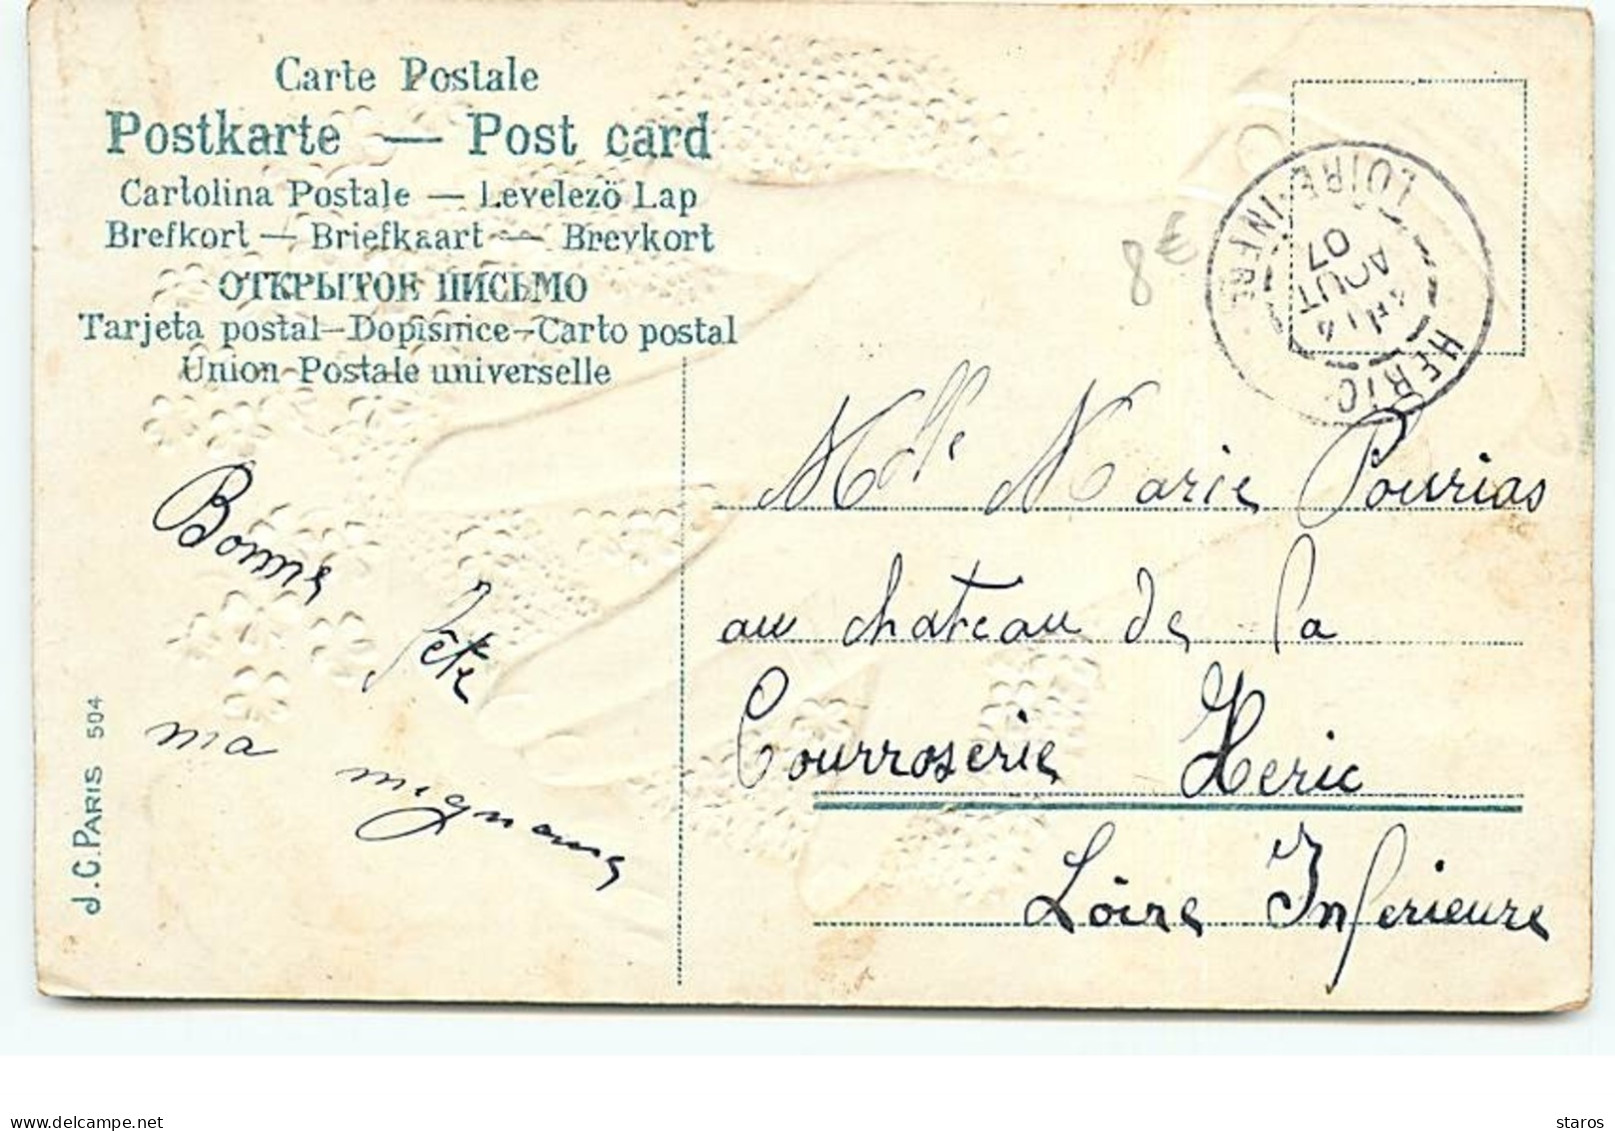 Carte Postale
Postkarte — Post card
Cartolina Postale — Levelezö Lap
Brefkort — Briefkaart — Brevkort
ОТКРЫТОЕ ПИСЬМО
Tarjeta postal—Dopisnice—Carto postal
Union Postale universelle
8€
LOIRE-INFRE
HERIC
AOUT
07
Bonne
fête
ma mignonne
J.C. PARIS 504
Melle Marie Pourias
au château de la
Courroserie Heric
Loire Inferieure
delcampe.net
staros